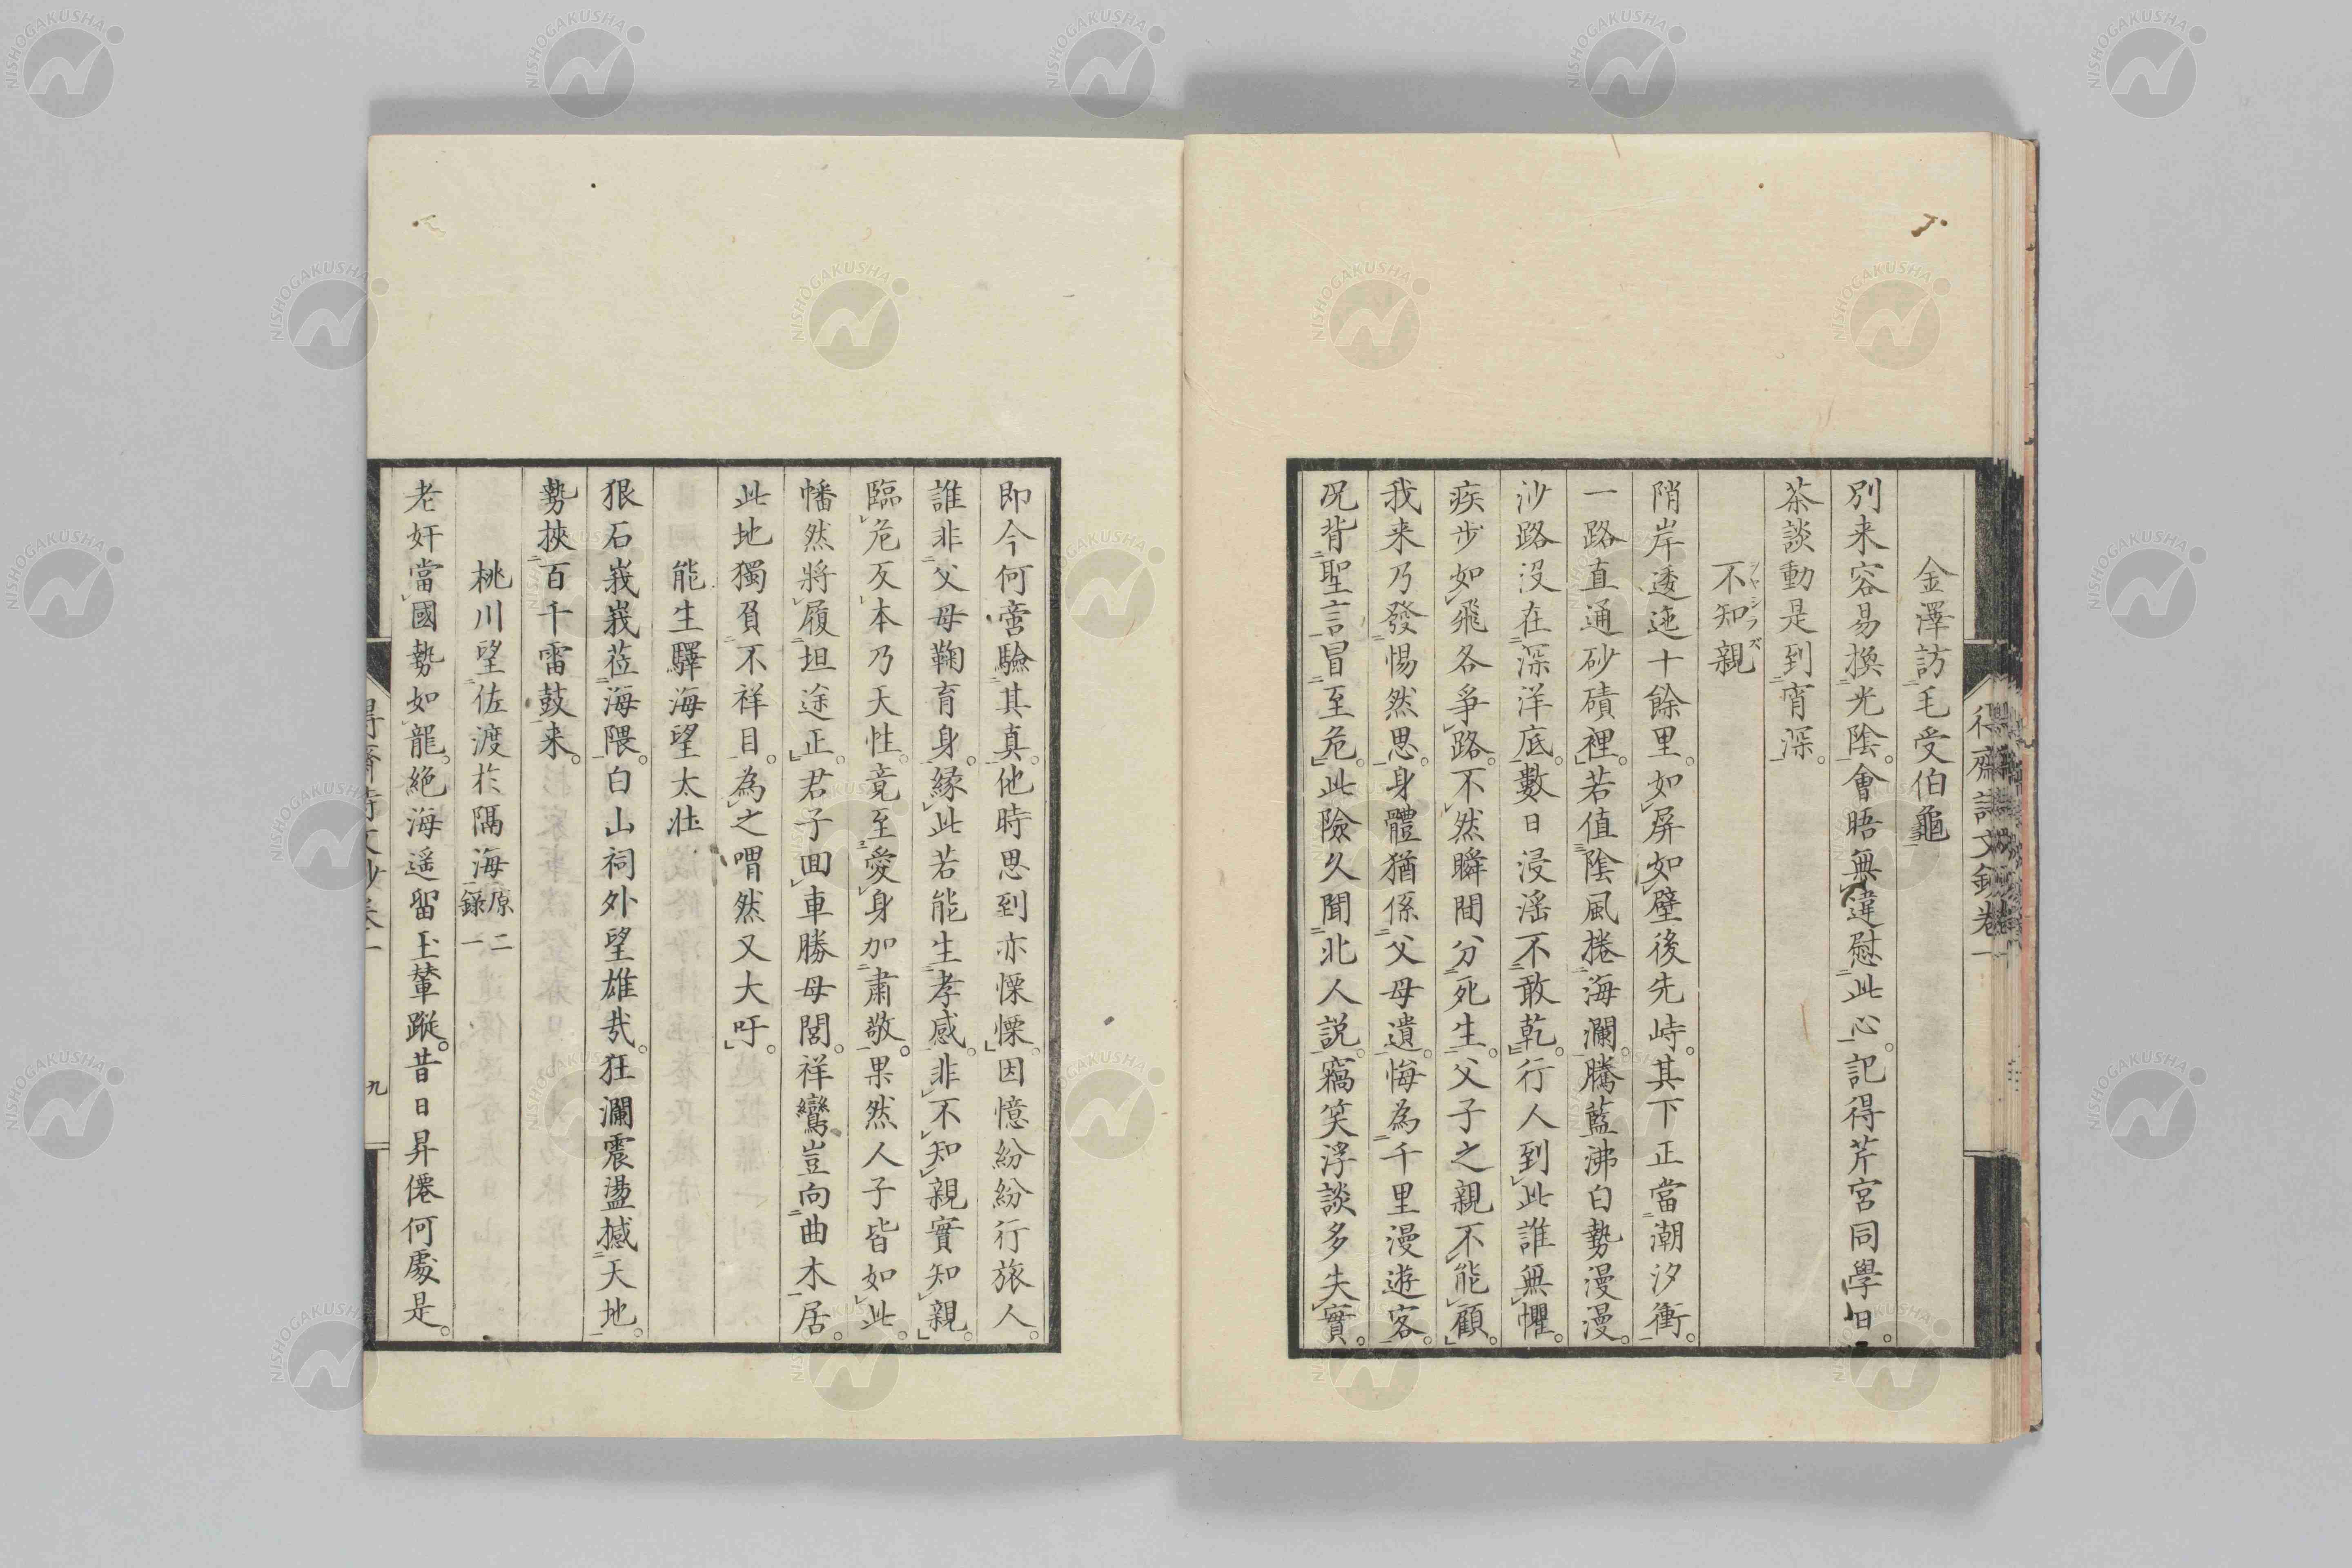 金澤訪毛受伯龜
別来容易換光陰會晤無違慰此心記得芹宮同學日
茶談動是到宵深
不知親
ヲヤシラズ
陗岸逶迤十餘里如屏如壁後先峙其下正當潮汐衝
一路直通砂磧裡若值陰風捲海瀾騰藍沸白勢漫漫
沙路没在深洋底數日浸淫不敢乾行人到此誰無懼
疾步如飛各爭路不然瞬間分死生父子之親不能顧
我来乃發惕然思身體猶係父母遺悔為千里漫遊客
况背聖言冒至危此險久聞北人說竊笑浮談多失實
即今何啻驗其真他時思到亦慄慄因憶紛紛行旅人
誰非父母鞠育身緣此若能生孝感非不知親實知親
臨危反本乃天性竟至愛身加肅敬果然人子皆如此
幡然將履坦途正君子囬車勝母閭祥鸞豈向曲木居
此地獨負不祥目為之喟然又大吁
能生驛海望太壮
狠石峩峩莅海隈白山祠外望雄哉狂瀾震盪撼天地
勢挾百千雷鼓来
桃川望佐渡於隔海原二錄一
老奸當國勢如龍絕海遥留玉輦蹤昔日昇僊何處是
九
NISHOGAKUSHA